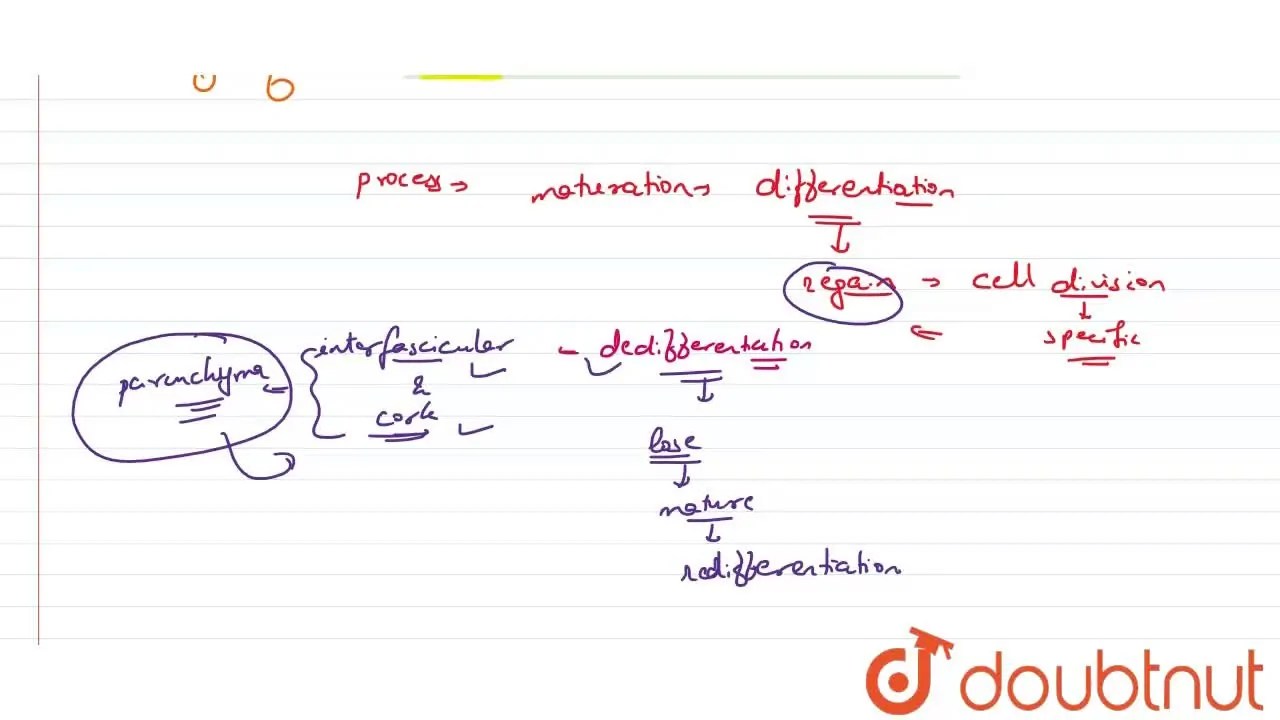 process → maturation → differentiation
regain → cell division
specific
interfascicular - dedifferentiation
parenchyma
&
cork
lose
mature
redifferentiation
doubtnut